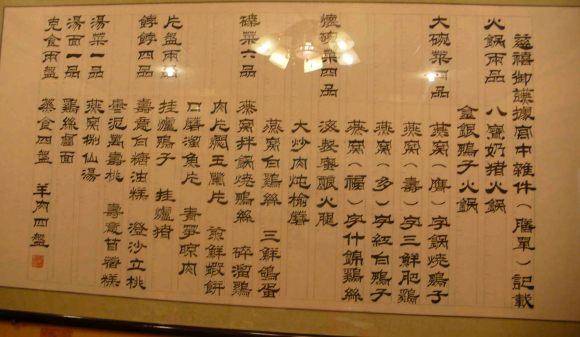 慈禧御膳據宮中雜件（膳單）記載
火鍋兩品 八寶奶豬火鍋
金銀鴨子火鍋
大碗菜四品 燕窩（慶）字鍋燒鴨子
燕窩（壽）字三鮮肥鷄
燕窩（多）字紅白鴨子
燕窩（福）字什錦鷄絲
懷碗菜四品 火腿
大炒肉炖榆蘑
燕窩白鷄絲 三鮮鴿蛋
碟菜六品 燕窩拌鍋燒鴨絲 碎溜鷄
肉片燜玉蘭片 煎鮮蝦餅
口蘑溜魚片 青筍晾肉
片盤兩品 挂爐鴨子 挂爐豬
餑餑四品 壽意白糖油糕 澄沙立桃
棗泥萬壽桃 壽意苜蓿糕
湯菜一品 燕窩捌仙湯
湯面一品 鷄絲面
克食兩盤 蒸食四盤 羊肉四盤